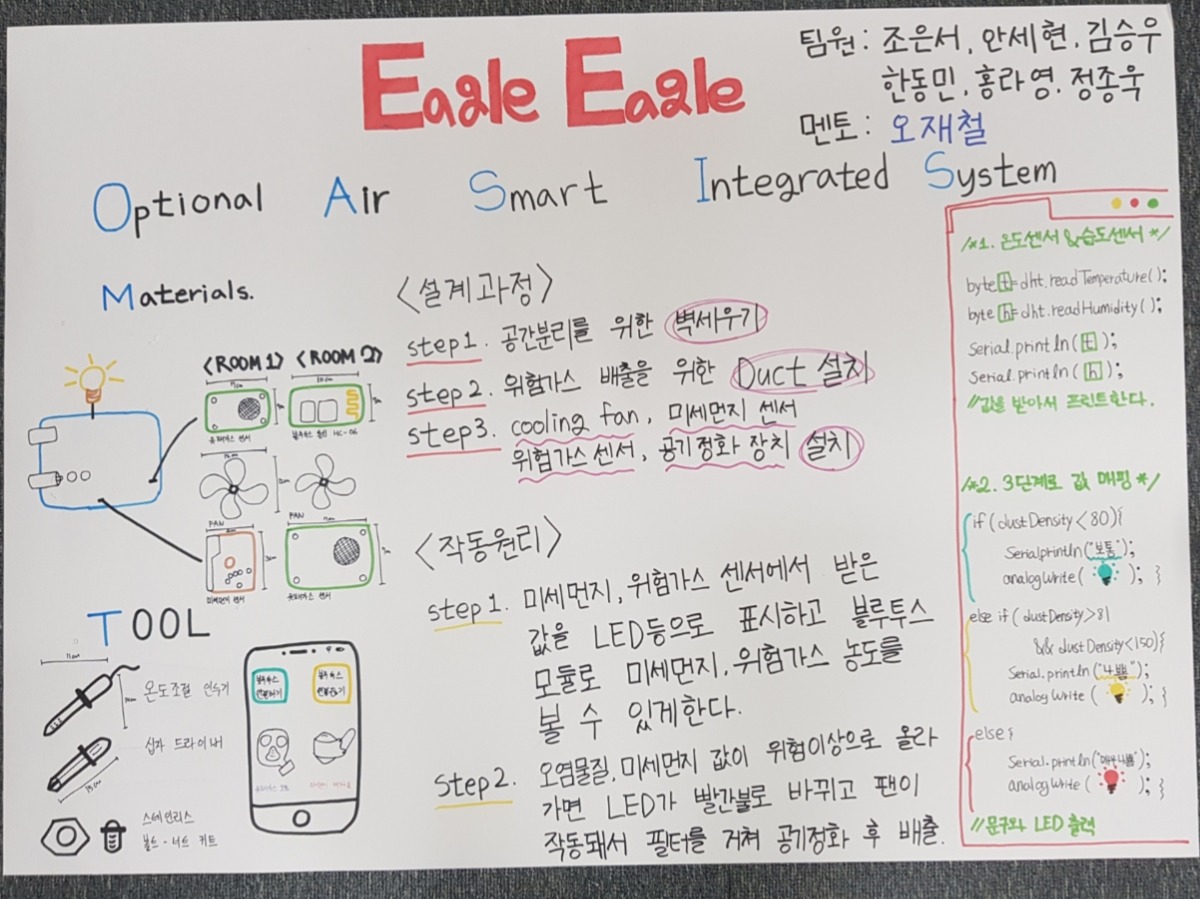 Eagle Eagle
팀원: 조은서, 안세현, 김승우
한동민, 홍라영, 정종욱
멘토: 오재철
Optional Air Smart Integrated System
Materials.
<ROOM 1> <ROOM 2>
유해가스 센서
블루투스 모듈 HC-06
FAN
FAN
미세먼지 센서
TOOL
11cm
온도조절 인두기
십자 드라이버
15cm
스테인리스
볼트-너트 키트
블루투스
연결하기
블루투스
<설계과정>
step1. 공간분리를 위한 벽세우기
step2. 위험가스 배출을 위한 Duct 설치
step3. cooling fan, 미세먼지 센서
위험가스 센서, 공기정화 장치 설치
<작동원리>
step1. 미세먼지, 위험가스 센서에서 받은
값을 LED등으로 표시하고 블루투스
모듈로 미세먼지, 위험가스 농도를
볼 수 있게한다.
step2. 오염물질, 미세먼지 값이 위험이상으로 올라
가면 LED가 빨간불로 바뀌고 팬이
작동돼서 필터를 거쳐 공기정화 후 배출.
/*1. 온도센서 & 습도센서 */
byte t= dht.readTemperature();
byte h= dht.readHumidity();
Serial.println(t);
Serial.println(h);
//값을 받아서 프린트한다.
/*2. 3단계로 값 매핑 */
if (dustDensity<80){
Serialprintln("보통");
analogWrite( ); }
else if( dustDensity>81
&& dustDensity<150){
Serial.println("나쁨");
analogWrite( ); }
else{
Serial.println("매우나쁨");
analogWrite( ); }
//문구와 LED 출력